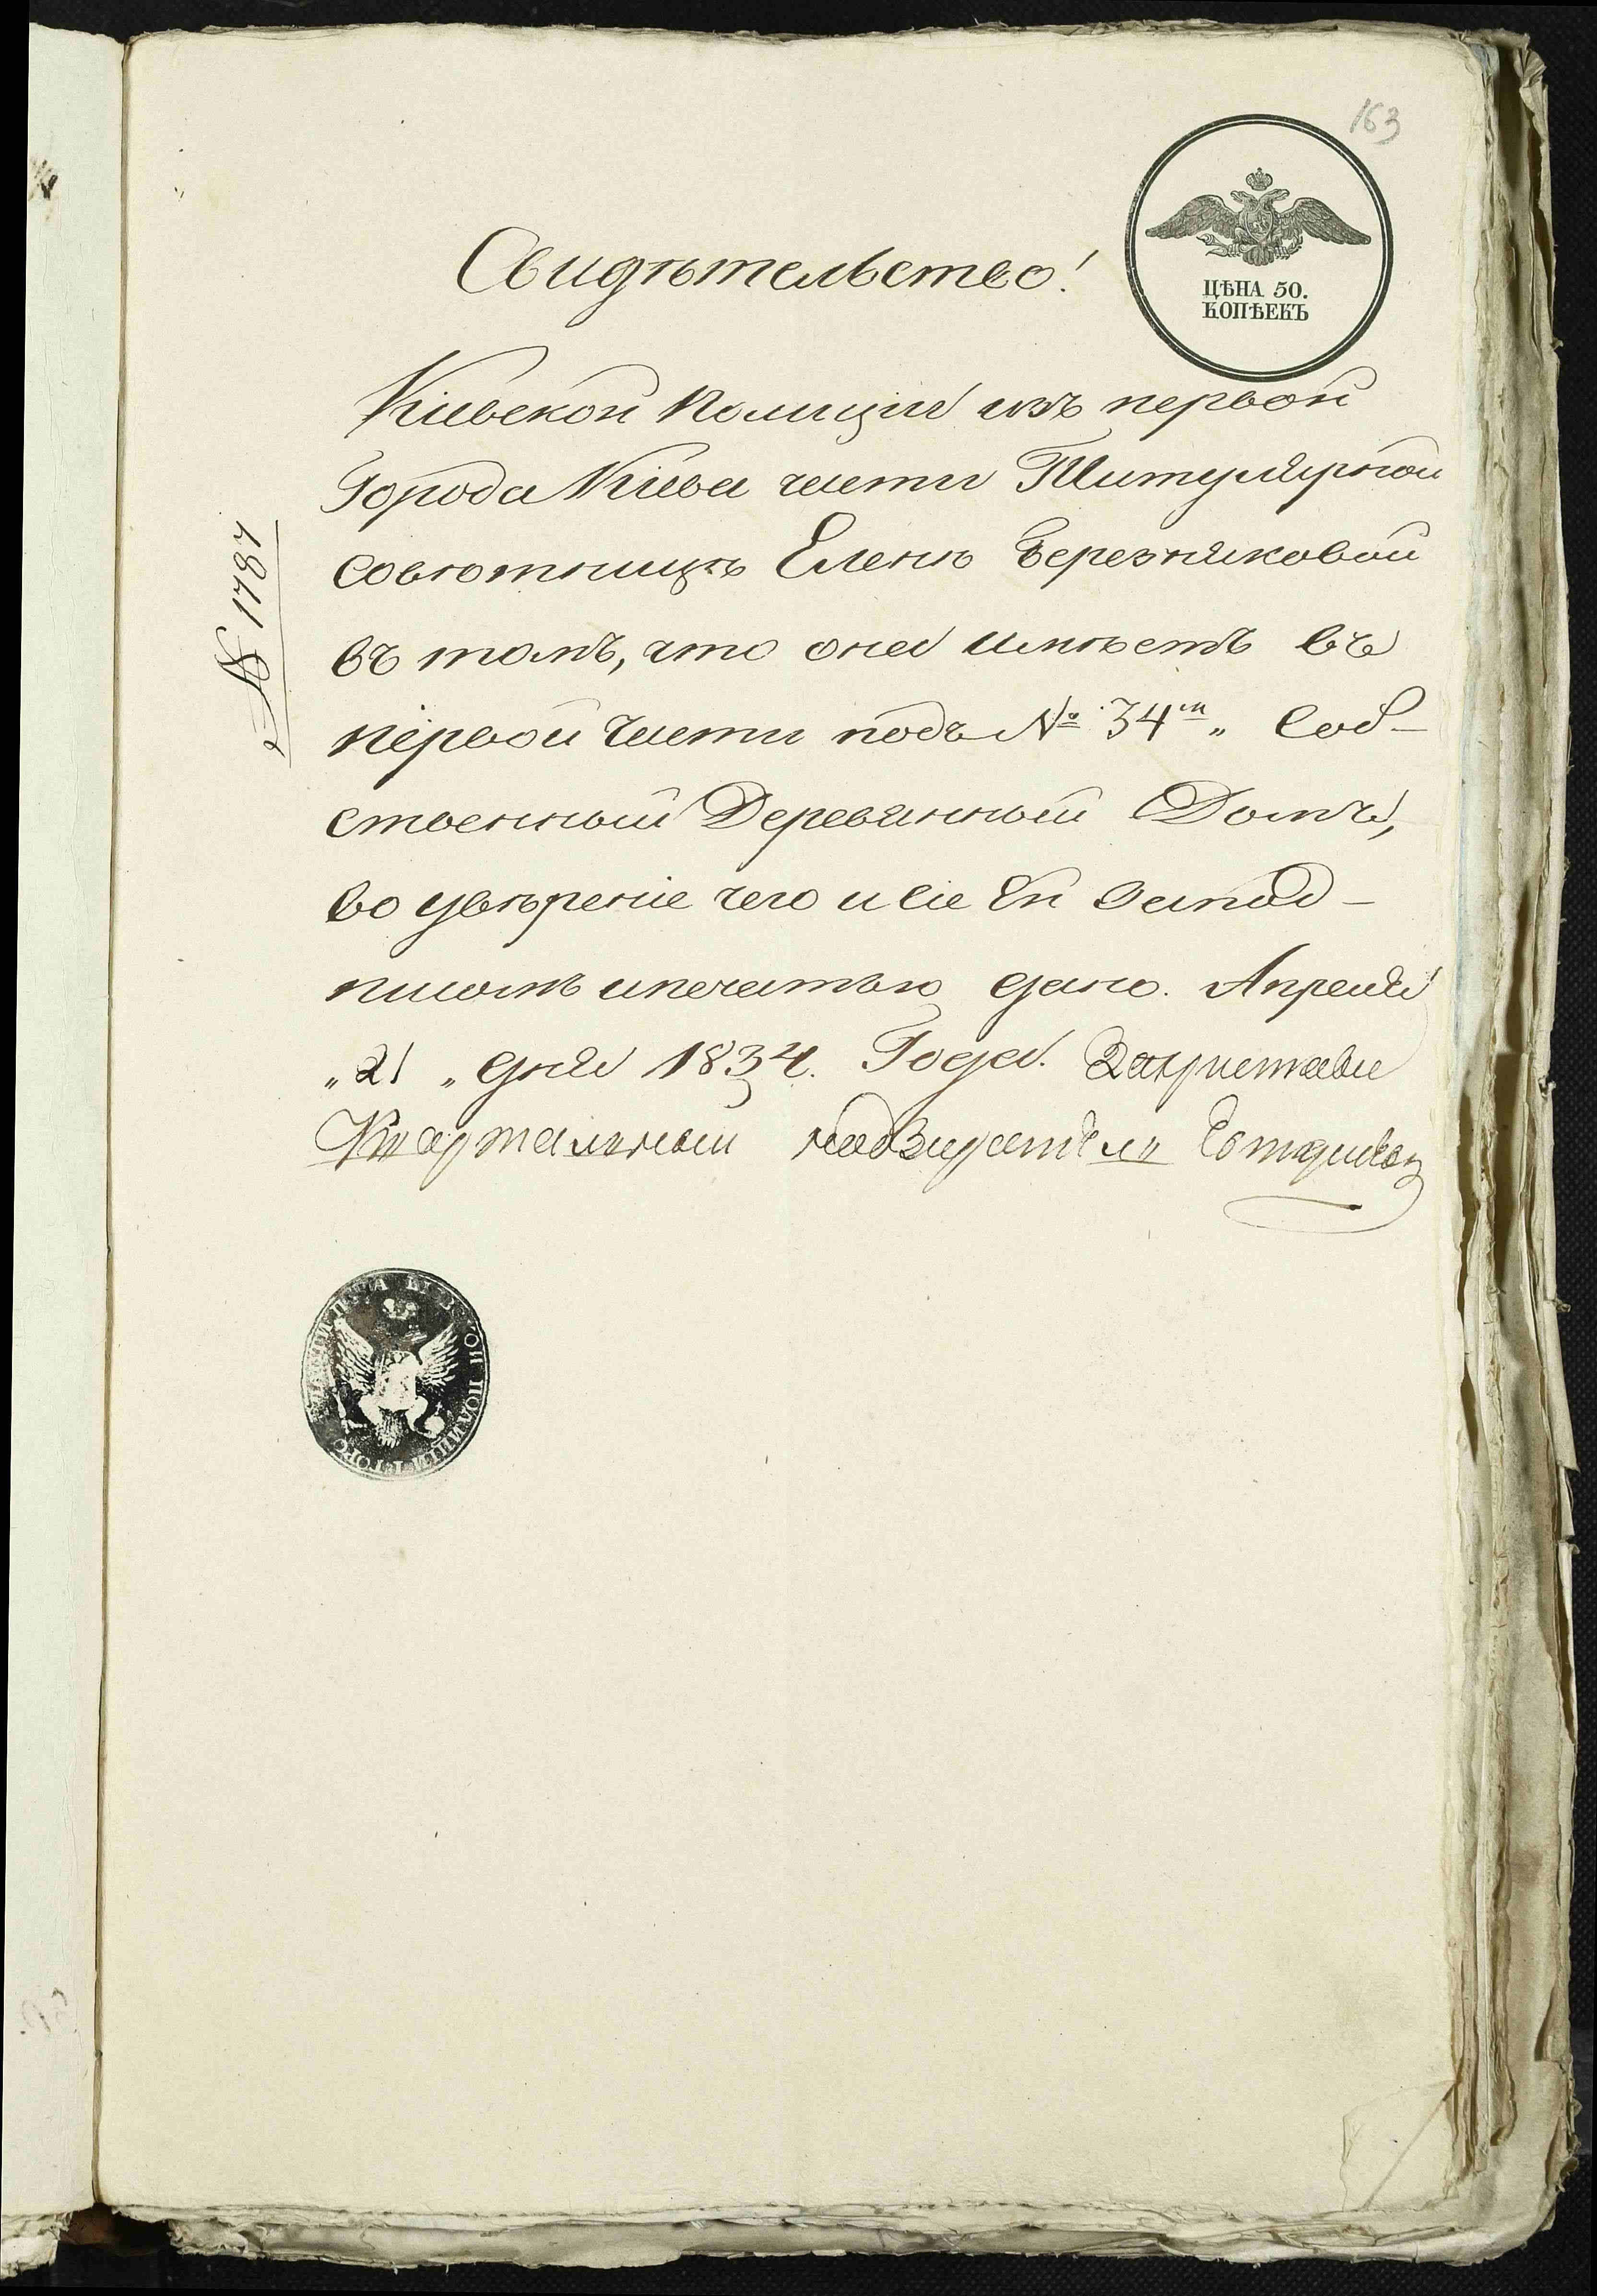 163
ЦѢНА 50.
КОПѢЕКЪ
Свидѣтельство!
№ 1787
Кіевской Полиціи изъ первой
Города Кіева части Титулярной
совѣтницѣ Еленѣ Березняковой
въ томъ, что она имѣетъ въ
первой части подъ № 34м „ Соб-
ственный Деревянный Домъ,
во увѣреніе чего и сіе Ей запод-
писомъ ипечатью дано. Апреля
„21„ дня 1834. Года. Запристава
Квартальный надзиратель